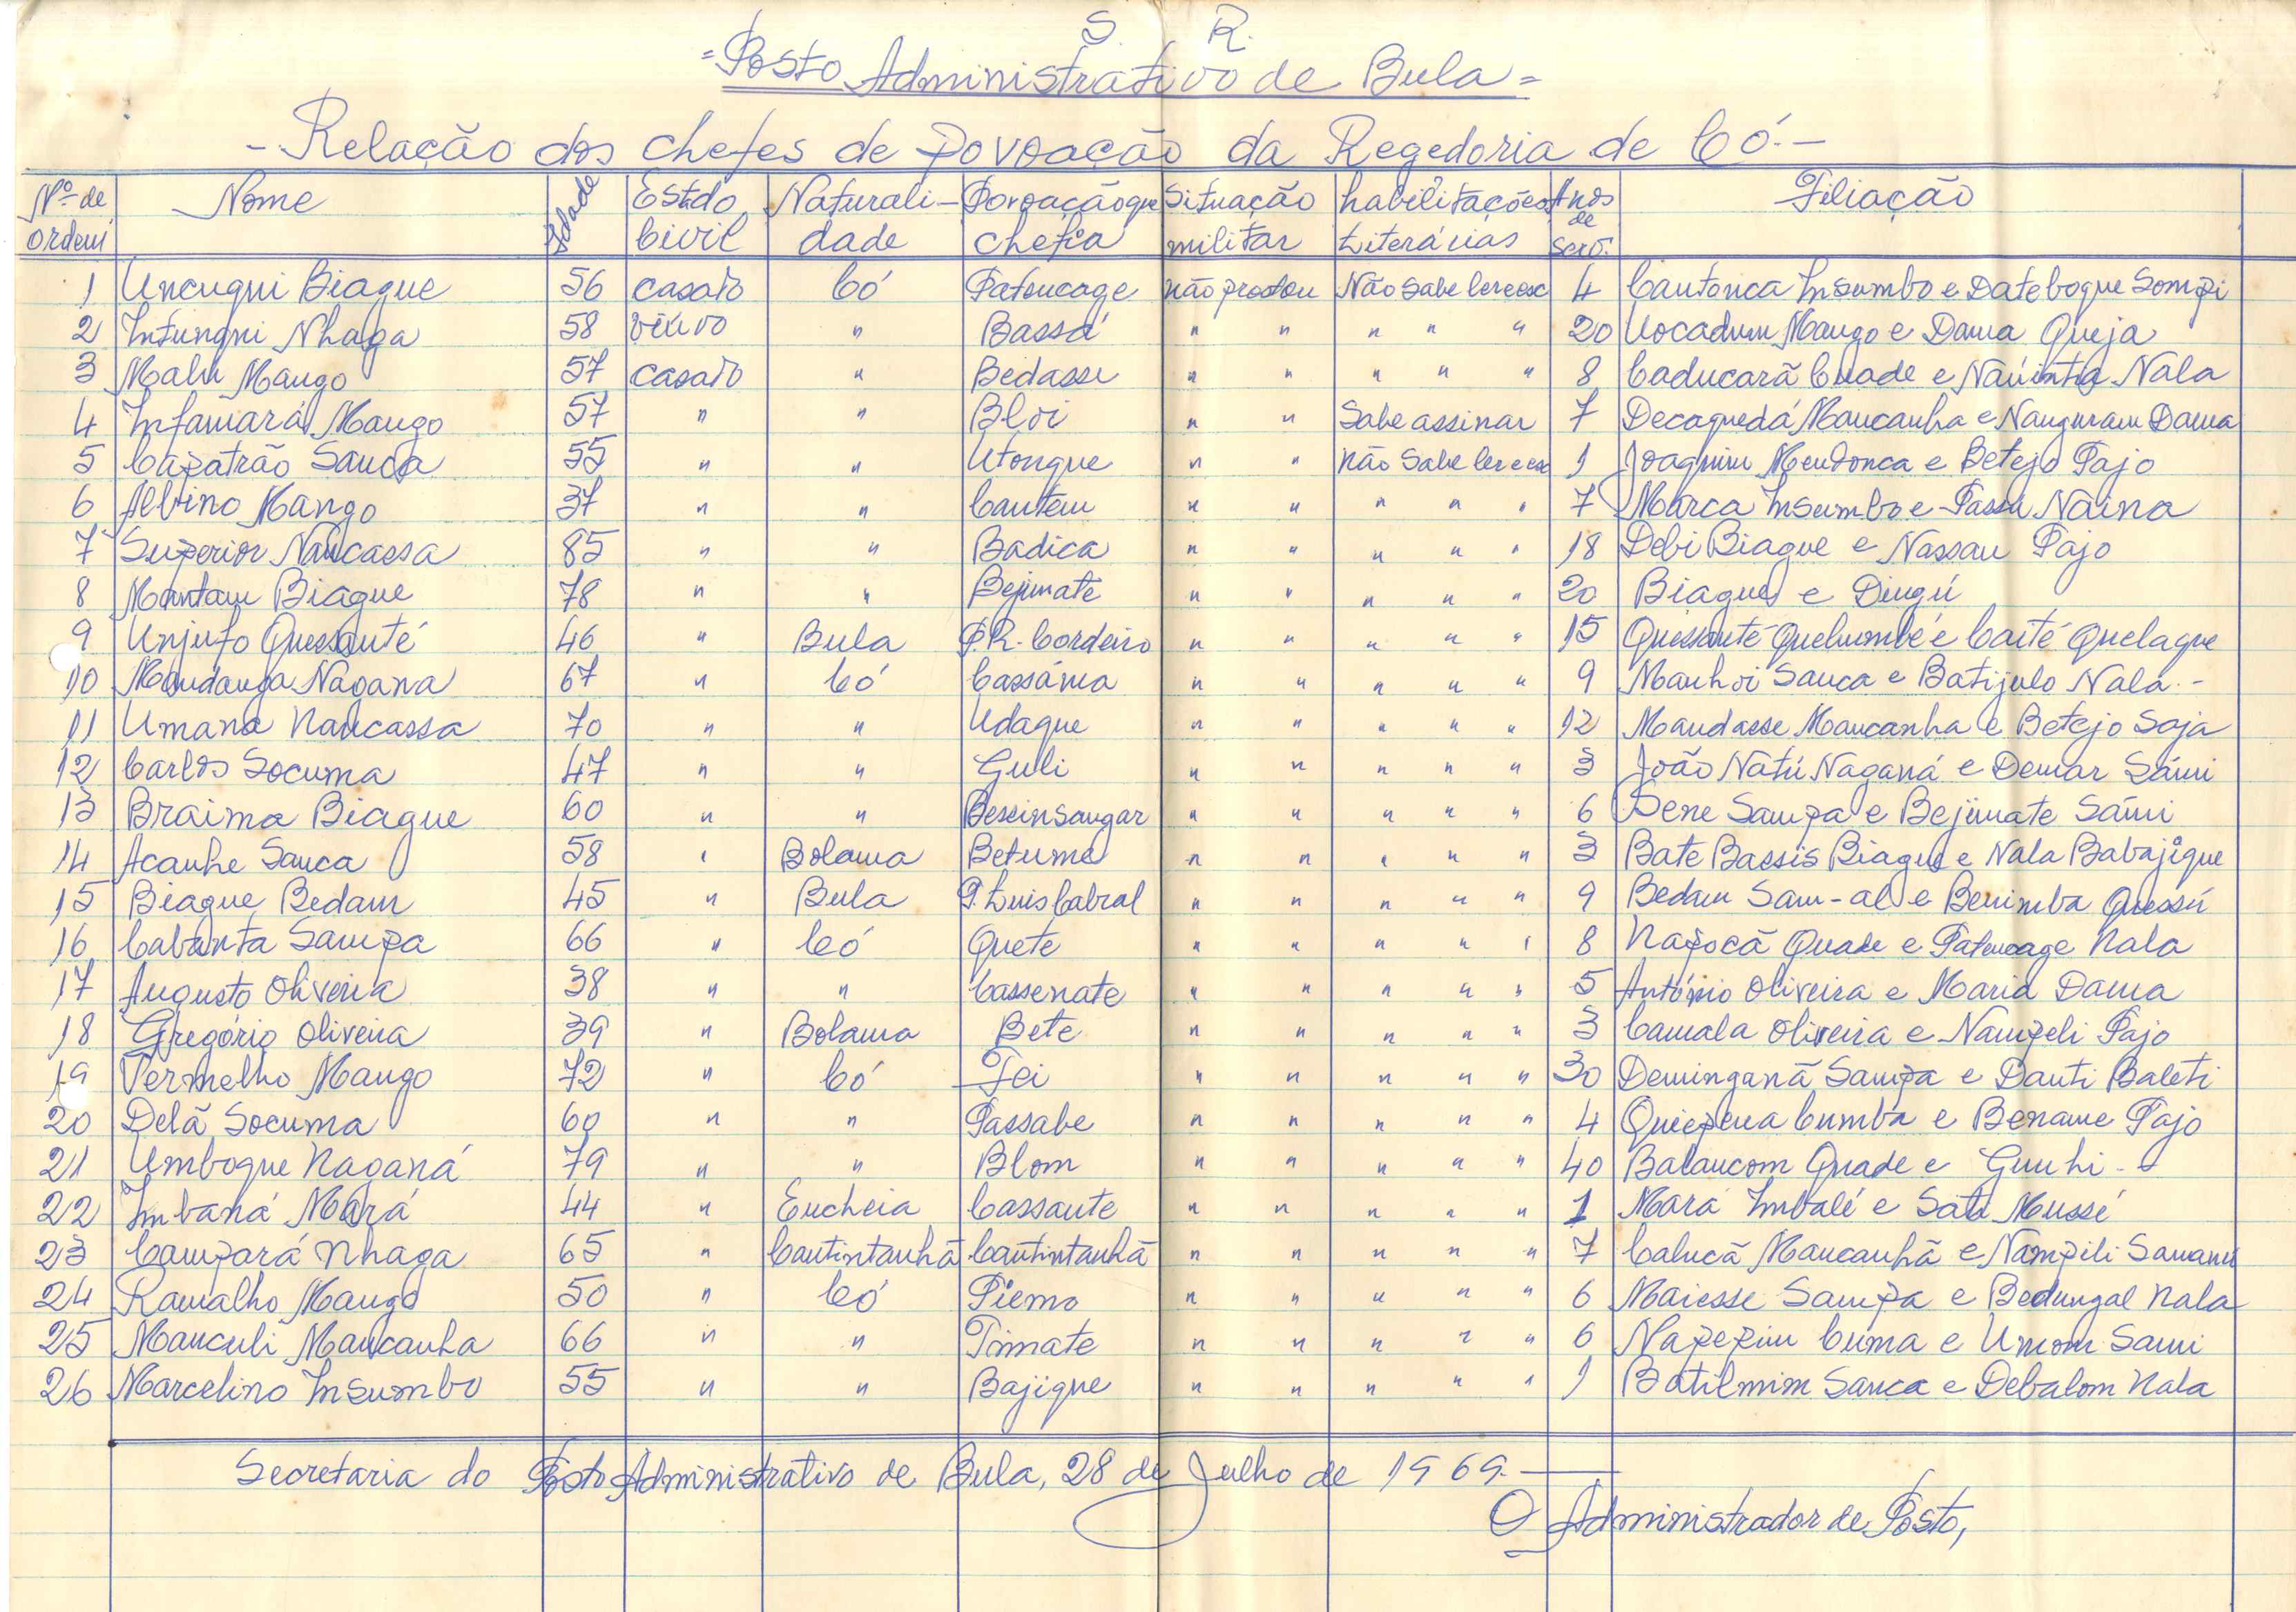 S. R.
=Posto Administrativo de Bula=
- Relação dos chefes de povoação da Regedoria de Có.-
Nº de ordem Nome Idade Estado Civil Naturalidade Povoação que chefia Situação militar habilitações Literárias Anos de serv. Filiação
1 Uncuqui Biague 56 casado Có Patoucage não prestou Não sabe ler e esc 4 Cantonca Insumbo e Dateboque Sompi
2 Intunqui Nhaga 58 viúvo " Bassá " " " " " 20 Uocadum Mango e Dama Queja
3 Malu Mango 57 casado " Bedasse " " " " " 8 Caducarã Cuade e Náuintia Nala
4 Infamará Mango 57 " " Bloi " " Sabe assinar 7 Decaquedá Mancanha e Nanguram Dama
5 Capatrão Sanca 55 " " Utongue " " não sabe ler e esc 1 Joaquim Mendonca e Betejo Pajo
6 Albino Mango 37 " " Cantem " " " " " 7 Marca Insumbo e Passu Naina
7 Superior Naucassa 85 " " Badica " " " " " 18 Debi Biague e Nassau Pajo
8 Montam Biague 78 " " Bejimate " " " " " 20 Biague e Dingú
9 Unjufo Quessanté 46 " Bula P.R. Cordeiro " " " " " 15 Quessanté Quelumbé e Caité Quelaque
10 Mandanga Nagana 67 " Có Cassáma " " " " " 9 Manhoi Sanca e Batijulo Nala.-
11 Umana Naucassa 70 " " Udaque " " " " " 12 Mandasse Mancanha e Betejo Soja
12 Carlos Socuma 47 " " Guli " " " " " 3 João Natú Naganá e Demar Sámi
13 Braima Biague 60 " " Bessinsangar " " " " " 6 Dene Sampa e Bejimate Sámi
14 Acanhe Sanca 58 " Bolama Betume " " " " " 3 Bate Bassis Biague e Nala Babajique
15 Biague Bedam 45 " Bula P. Luis Cabral " " " " " 9 Bedam Sam-al e Benimba Quessú
16 Cabanta Sampa 66 " Có Quete " " " " " 8 Napocã Quade e Patoucage Nala
17 Augusto Oliveira 38 " " Cassenate " " " " " 5 António Oliveira e Maria Dama
18 Gregório Oliveira 39 " Bolama Bete " " " " " 3 Camala Oliveira e Nampeli Pajo
19 Vermelho Mango 72 " Có Tei " " " " " 30 Deminganã Sampa e Danti Baleti
20 Delã Socuma 60 " " Passabe " " " " " 4 Quiepena Cumba e Bename Pajo
21 Umboque Naganá 79 " " Blom " " " " " 40 Balancom Quade e Gunhi.-
22 Imbaná Mará 44 " Encheia Cassante " " " " " 1 Mará Imbalé e Satu Mussé
23 Campará Nhaga 65 " Cantintanhã Cantintanhã " " " " " 7 Calucã Mancanhã e Nampili Samanú
24 Ramalho Mango 50 " Có Piemo " " " " " 6 Maiesse Sampa e Bedungal Nala
25 Manculi Mancanha 66 " " Timate " " " " " 6 Napepim Cuma e Umom Sami
26 Marcelino Insumbo 55 " " Bajique " " " " " 1 Batilmim Sanca e Debalom Nala
Secretaria do Posto Administrativo de Bula, 28 de Julho de 1969.
O Administrador de Posto,